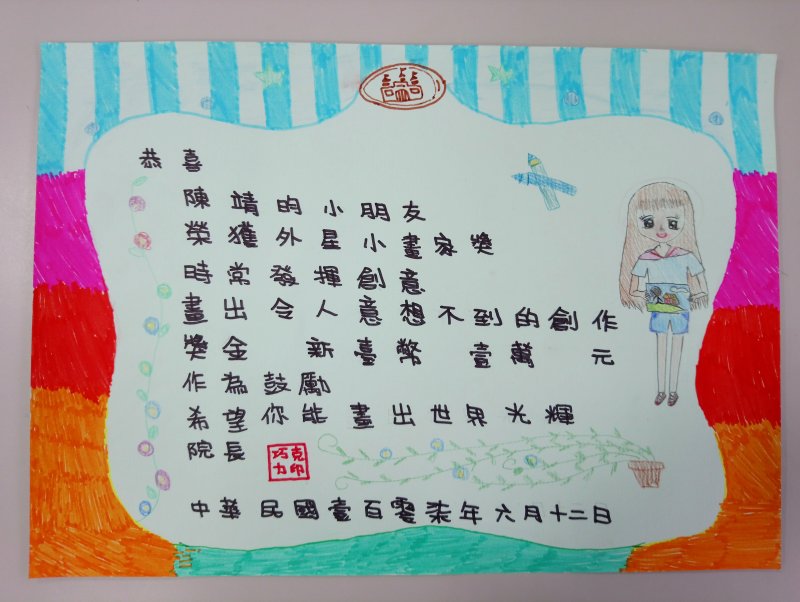 恭喜
陳靖昀小朋友
榮獲外星小畫家獎
時常發揮創意
畫出令人意想不到的創作
獎金 新臺幣 壹萬 元
作為鼓勵
希望你能畫出世界光輝
院長 巧克力印
中華民國壹百零柒年六月十二日